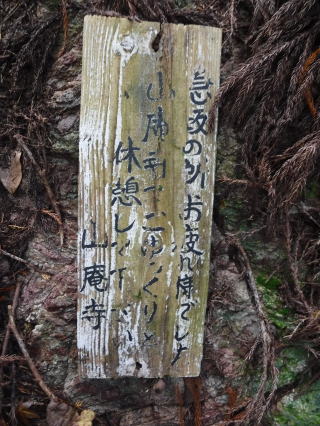 急坂の所お疲れ様でした
でごゆっくりと
休憩して下さい
山庵寺